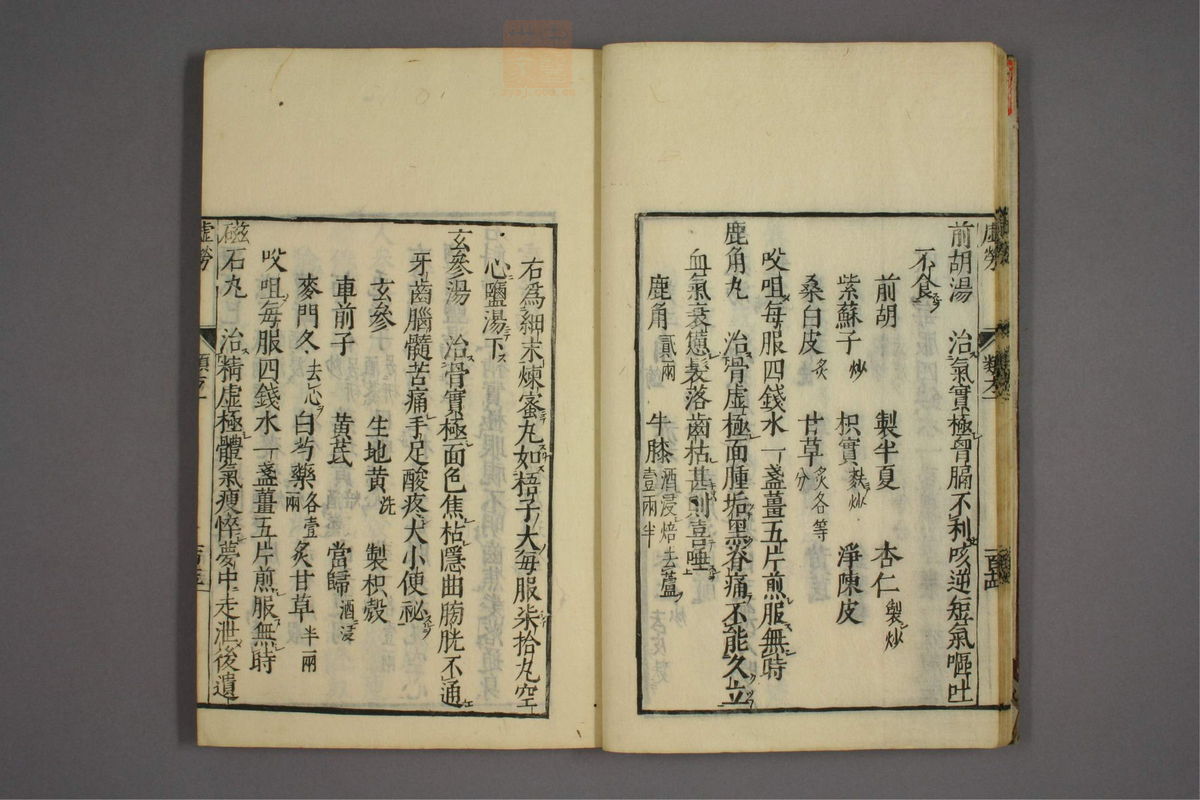 前胡湯 治氣實極胷膈不利咳逆短氣嘔吐
不食
前胡 製半夏 杏仁製炒
紫蘇子炒 枳實麩炒 淨陳皮
桑白皮炙 甘草炙各等分
㕮咀每服四錢水一盞薑五片煎服無時
鹿角丸 治骨虛極面腫垢黑脊痛不能久立
血氣衰憊髮落齒枯甚則喜唾
鹿角貳兩 牛膝酒浸焙去蘆壹兩半
右為細末煉蜜丸如梧子大每服柒拾丸空
心鹽湯下
玄參湯 治骨實極面色焦枯隱曲膀胱不通
牙齒腦髓苦痛手足酸疼大小便祕
玄參 生地黃洗 製枳殼
車前子 黃芪 當歸酒浸
麥門冬去心 白芍藥各壹兩 炙甘草半兩
㕮咀每服四錢水一盞薑五片煎服無時
磁石丸 治精虛極體氣瘦悴夢中走泄後遺
虛勞